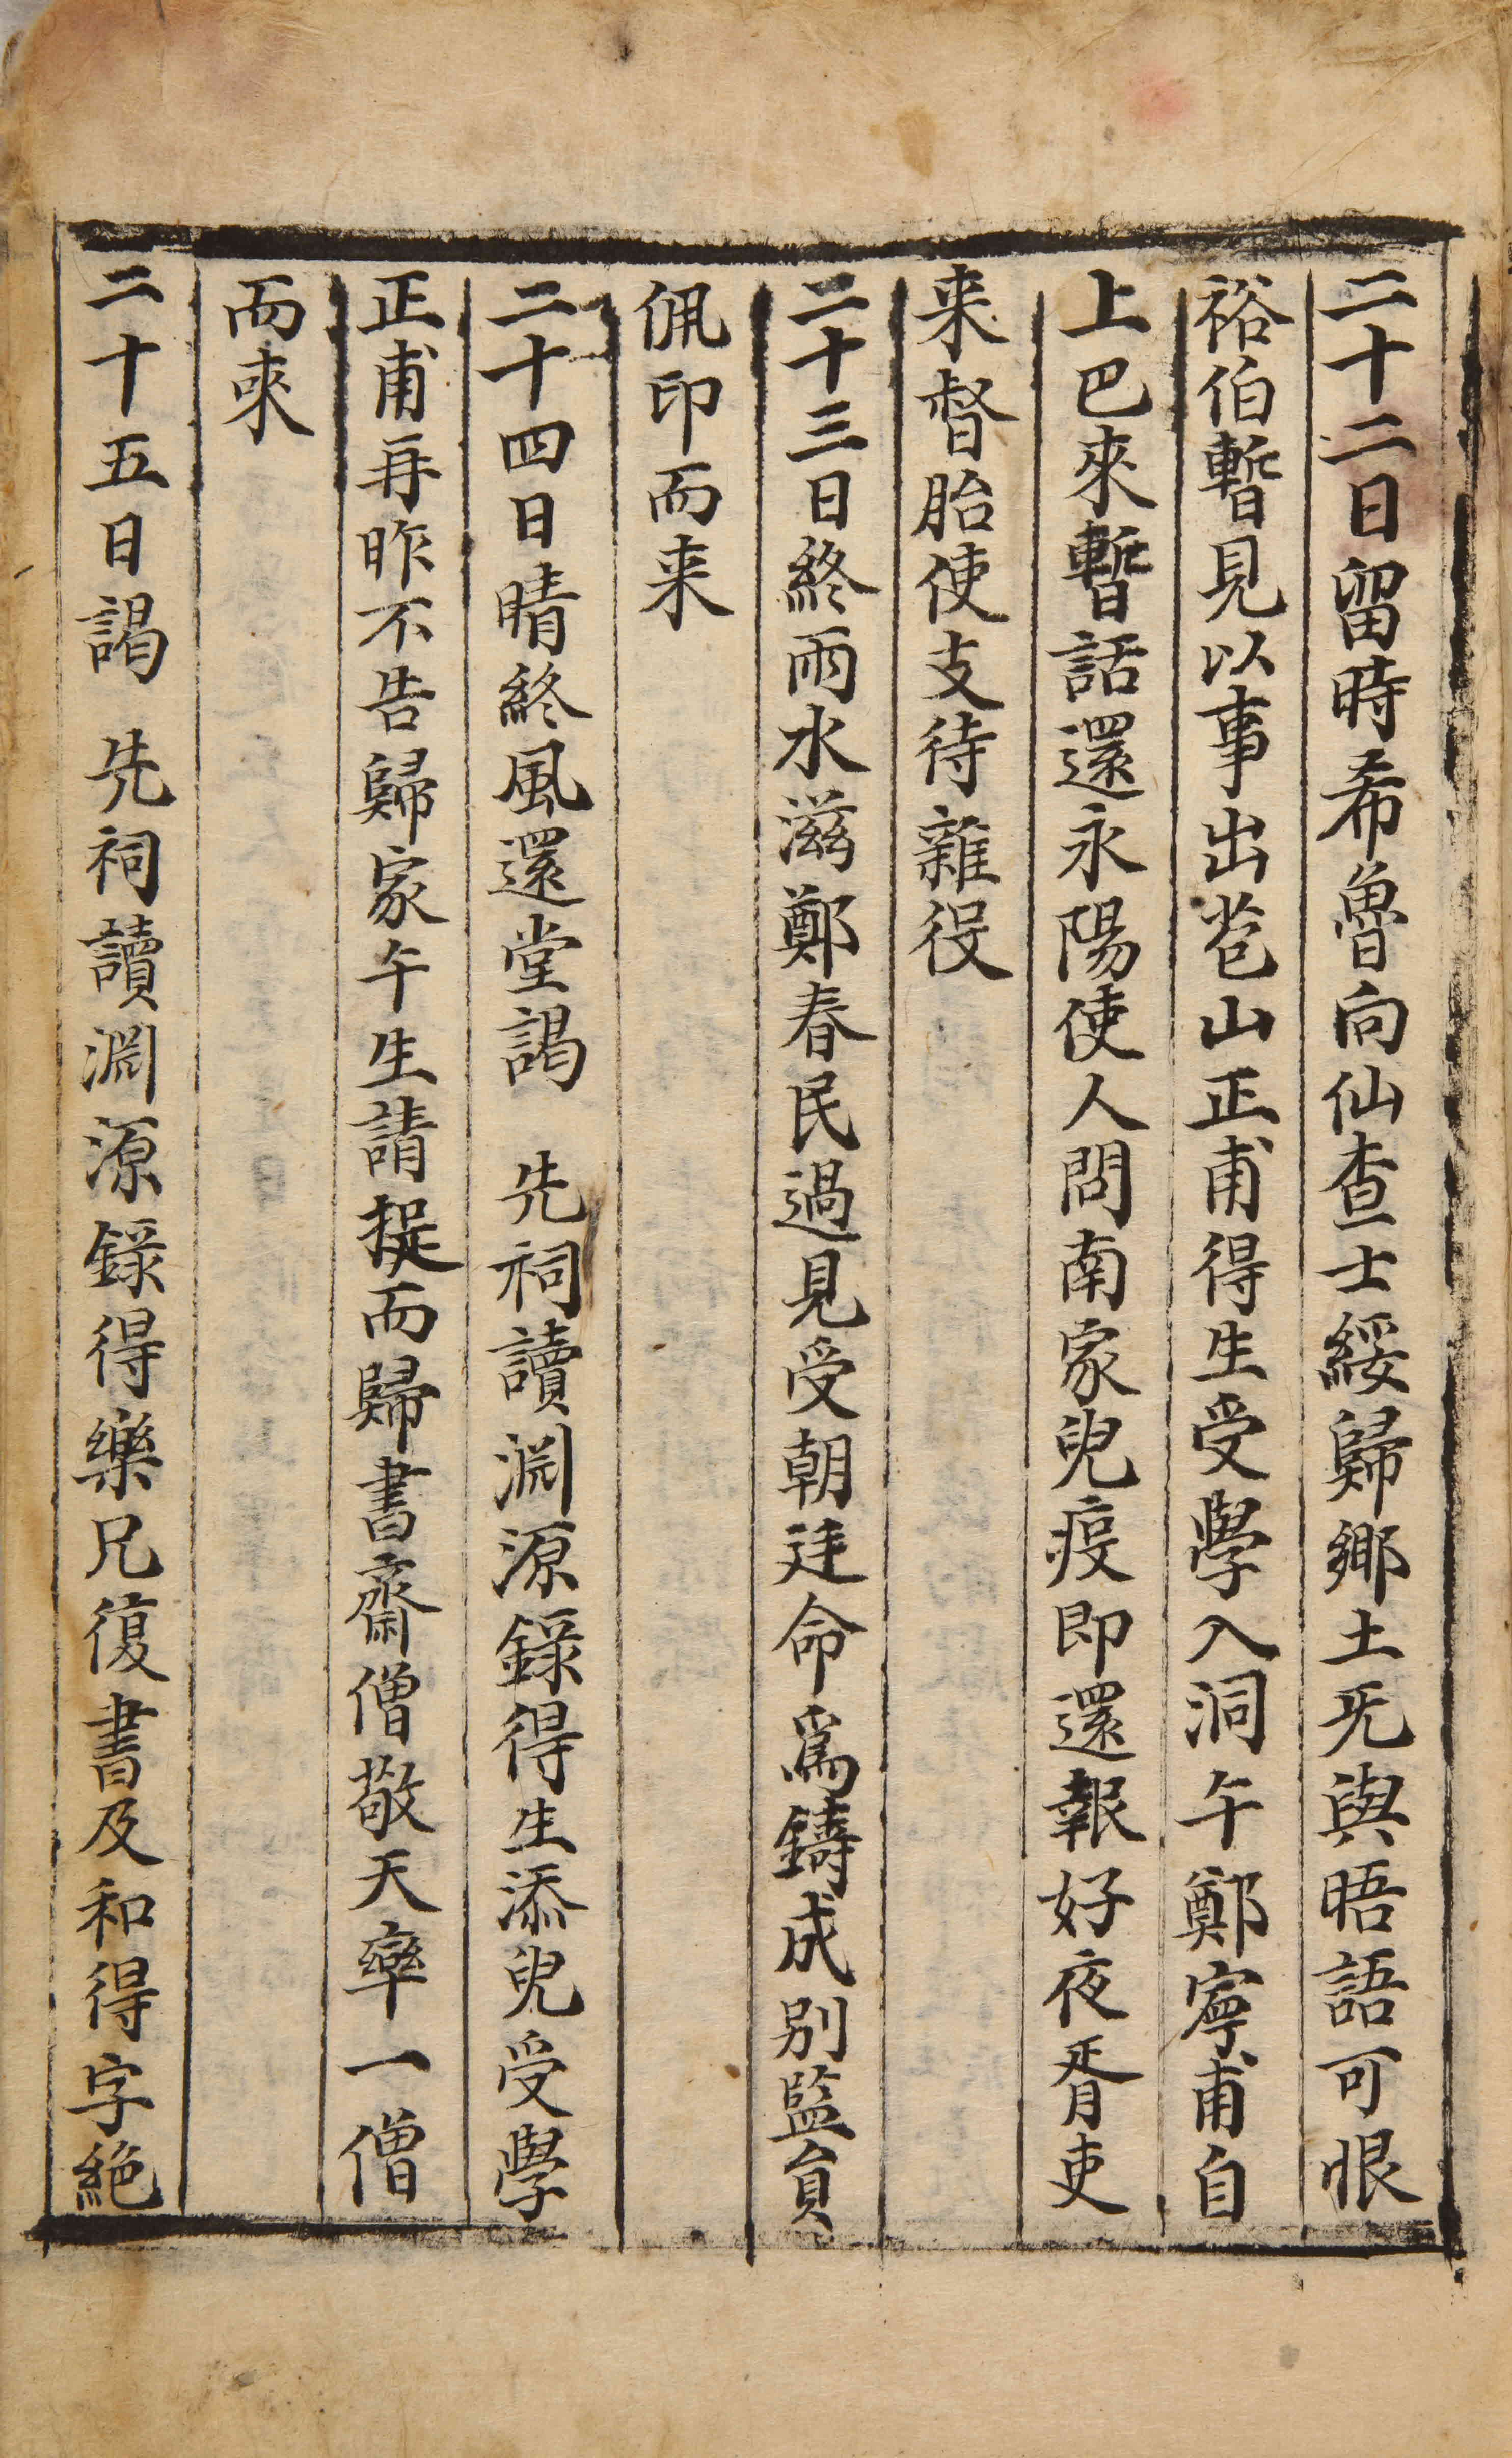 二十二日留時希魯向仙查士綏歸鄉土旡與晤語可恨
裕伯暫見以事出苍山正甫得生受學入洞午鄭寧甫自
上巴來暫話還永陽使人問南家兒疫即還報好夜胥吏
来督胎使支待雜役
二十三日終雨水滋鄭春民過見受朝廷命爲鑄成別監負
佩印而来
二十四日晴終風還堂謁 先祠讀淵源錄得生添兒受學
正甫再昨不告歸家午生請捉而歸書齋僧敬天率一僧
而來
二十五日謁 先祠讀淵源錄得樂兄復書及和得字絕